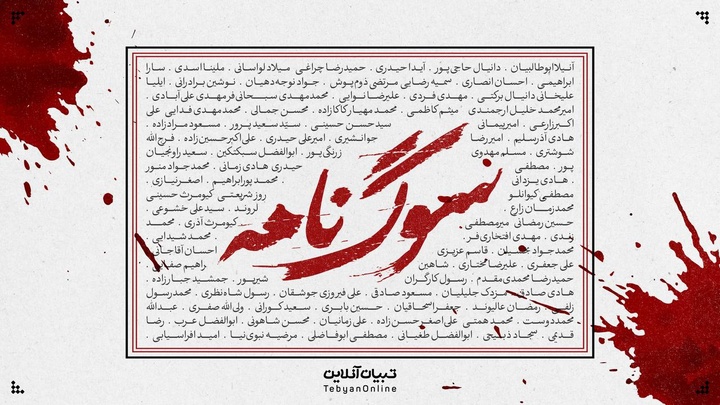 آنیلا ابوطالبیان . دانیال حاجی‌پور . آیدا حیدری . حمیدرضا چراغی . میلاد لواسانی . ملینا اسدی . سارا
ابراهیمی . احسان انصاری . سمیه رضایی . مرتضی ذوم‌پوش . جواد توجه‌دهیان . نوشین برادرانی . ایلیا
علیخانی دانیال برکتی . مهدی فردی . علیرضا نوایی . محمدمهدی سبحانی‌فر مهدی علی‌آبادی .
امیرمحمد خلیل ارجمندی . میثم کاظمی . محمد مهیار کاکازاده . محسن جمالی . محمدمهدی فدایی . علی
اکبر زارعی . امیر پیمانی . سیدحسن حسینی . سید سعید پرور . مسعود مرادزاده .
هادی آذرسلیم . امیررضا جوانشیری . امیرعلی حیدری . علی اکبر حسین زاده . فرج‌الله
شوشتری . مسلم مهدوی زرنگی‌پور . ابوالفضل سبکتکین . سعید راونجیان
پور . مصطفی حیدری هادی زمانی . محمدجواد منور
. هادی یزدانی . محمد پورابراهیم . اصغر نیازی .
مصطفی کیوانلو روز شریعتی . کیومرث حسینی
. محمدزمان زارع لروند . سید علی خشوعی .
حسین رمضانی میرمصطفی کیومرث آذری . محمد
زندی . مهدی افتخاری‌فر . محمد شیدایی .
محمدجواد . قاسم عزیزی احسان آقاجانی
علی جعفری . علیرضا مختاری . شاهین
حمیدرضا محمدی‌مقدم . رسول کارگران شیرپور . جمشید جبارزاده .
هادی جلیلیان . مسعود صادقی . علی فیروزی جوشقان . رسول شاه‌نظری . محمدرسول
رمضان عالیوند . جعفر اسحاقیان . حسین بابری . سعید کورانی . ولی‌الله صفری . عبدالله
محمددوست . محمد همتی . علی اصغر حسن زاده . علی زمانیان . محسن شاهونی . ابوالفضل عرب . رضا
قدیمی . سجاد ذبیحی . ابوالفضل طغیانی . مصطفی ابوفاضلی . مرضیه نبوی‌نیا . امید افراسیابی .
سوگ‌نامه
تبیان‌آنلاین
TebyanOnline